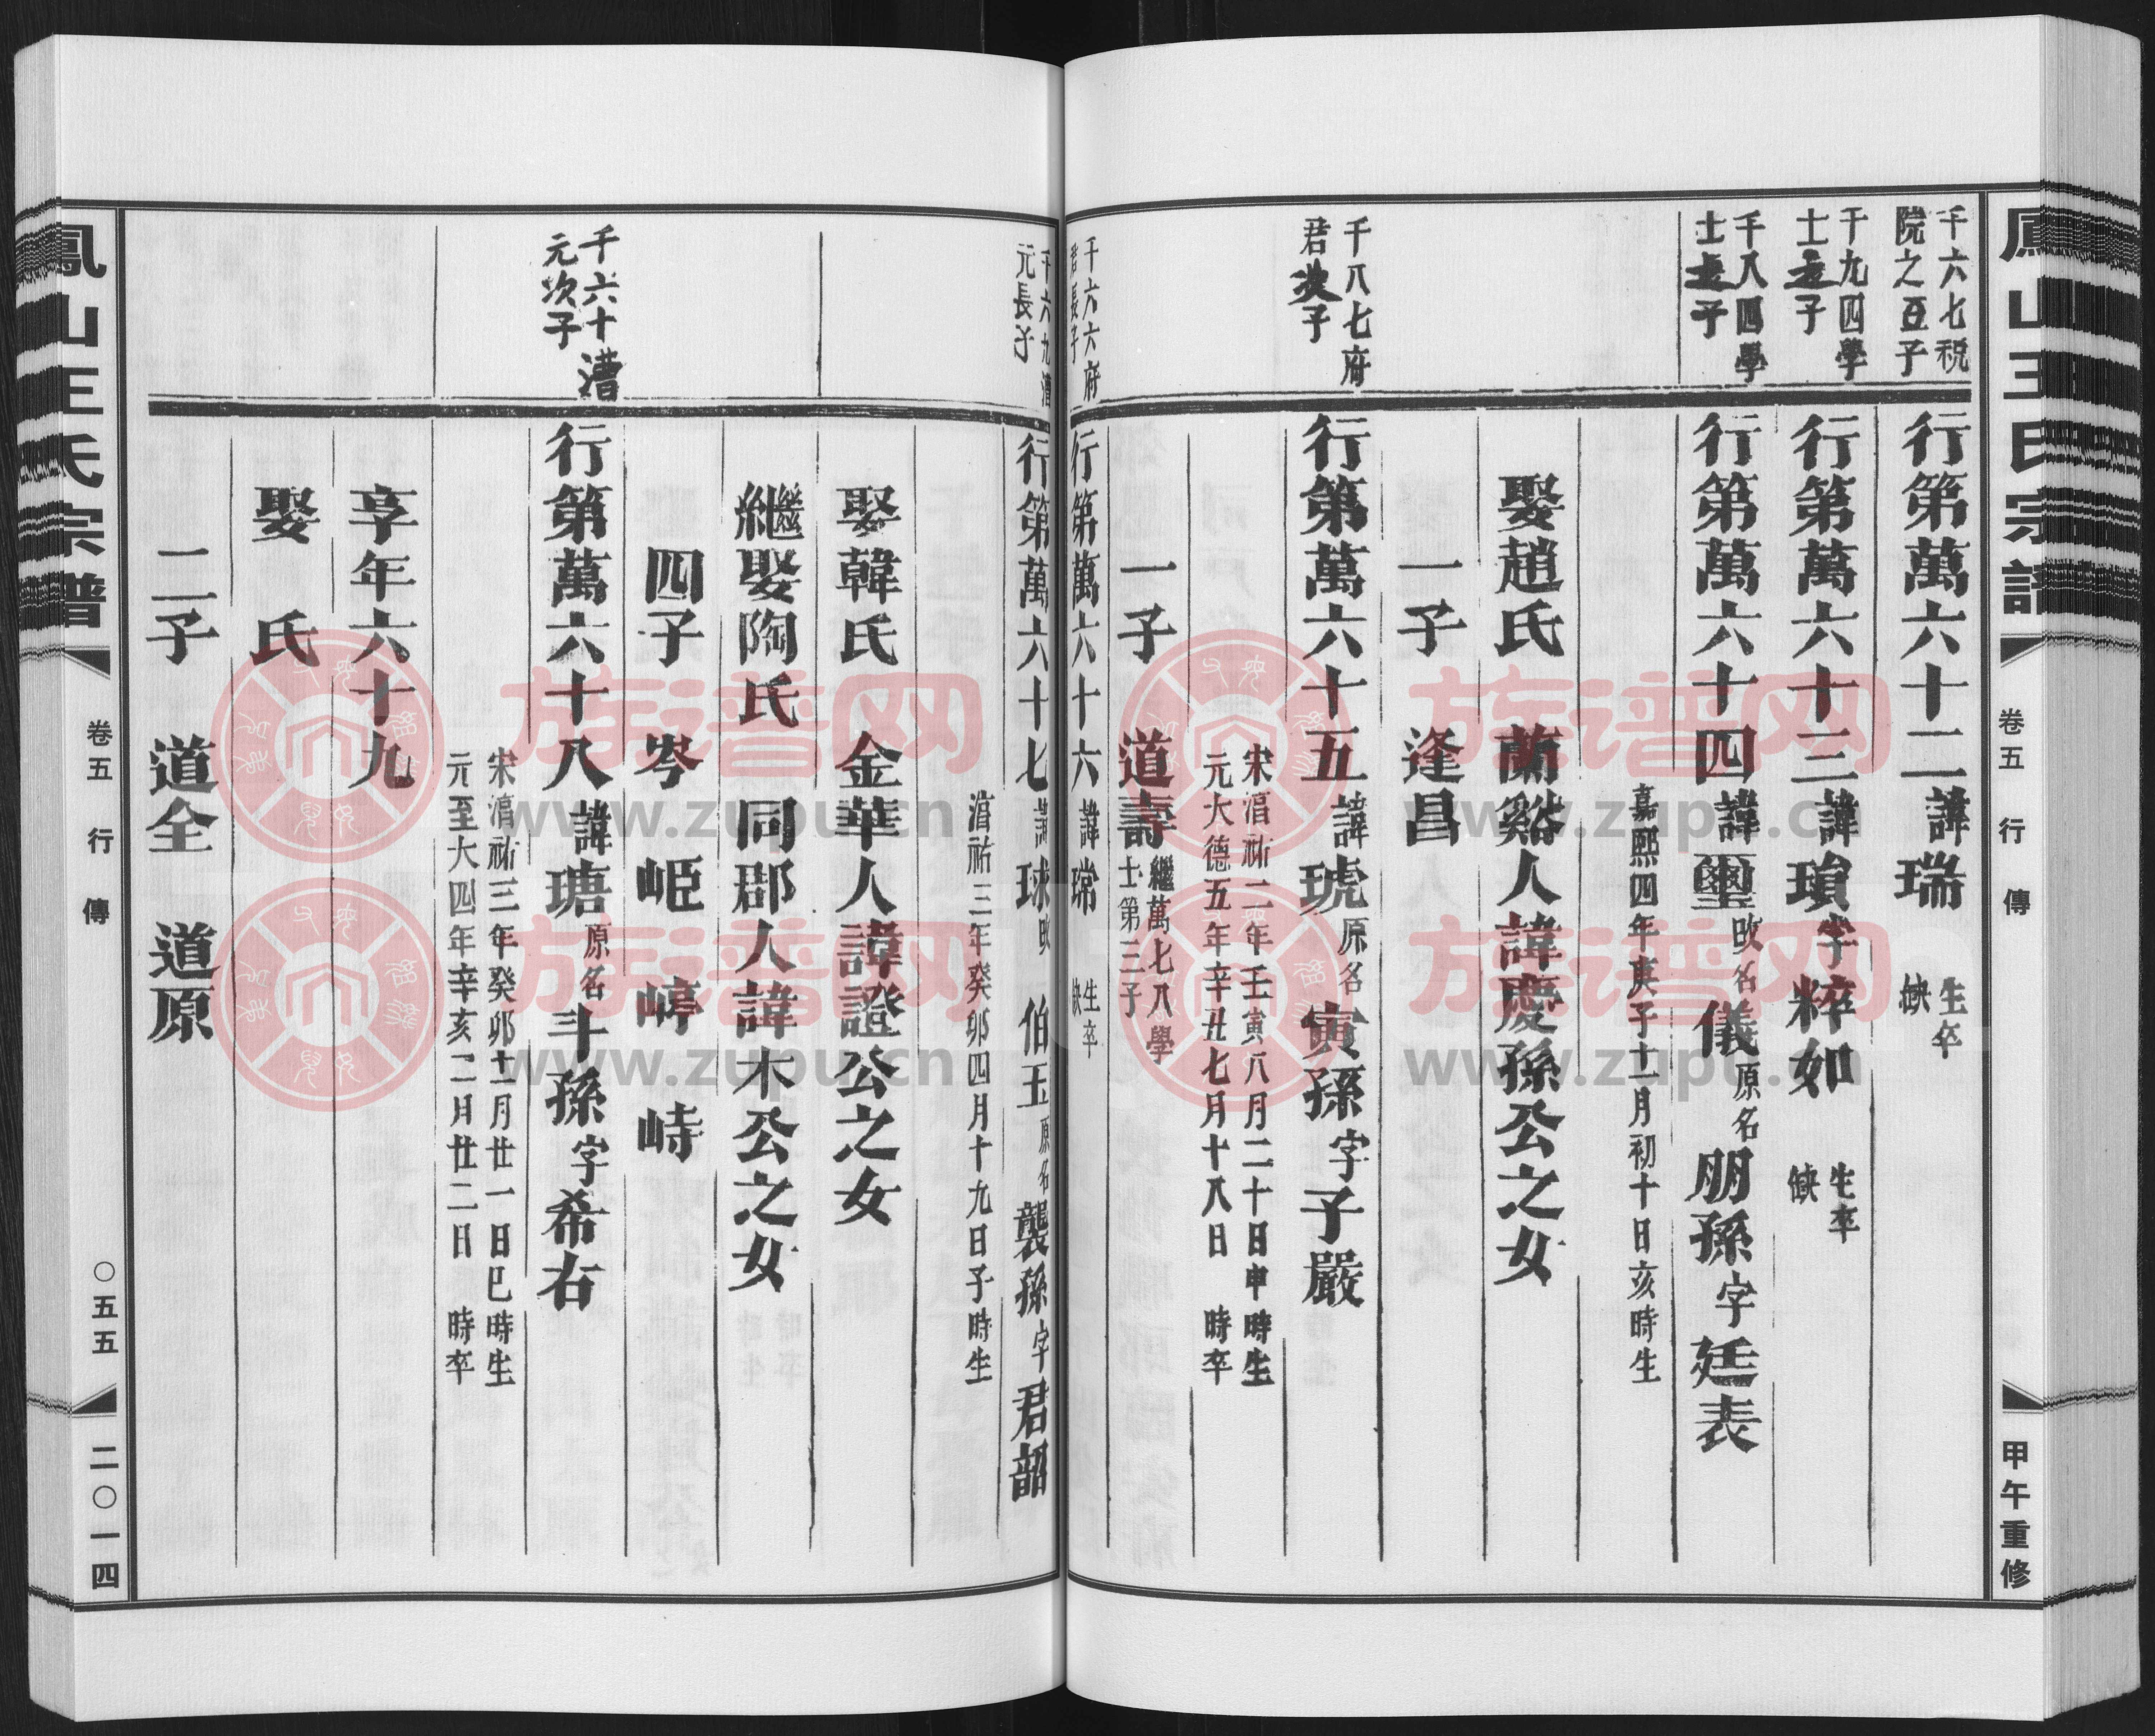 鳳山王氏宗譜
卷五 行傳
甲午重修
千六七税
院之亞子
行第萬六十二諱瑞
生卒
缺
千九四學
士長子
行第萬六十三諱瑣字粹如
生卒
缺
千八四學
士長子
行第萬六十四諱璽改名儀原名朋孫字廷表
嘉熙四年庚子十一月初十日亥時生
娶趙氏 蘭谿人諱慶孫公之女
一子 逢昌
千八七府
君次子
行第萬六十五諱琥原名寅孫字子嚴
宋淳祐二年壬寅八月二十日申時生
元大德五年辛丑七月十八日 時卒
一子 道壽
繼萬七八學
士第三子
千六六府
君長子
行第萬六十六諱瑺
生卒
缺
千六九漕
元長子
行第萬六十七諱球改 伯玉原名襲孫字君韶
淳祐三年癸卯四月十九日子時生
娶韓氏 金華人諱證公之女
繼娶陶氏 同郡人諱木公之女
四子 岑 岠 崞 峙
千六十漕
元次子
行第萬六十八諱瑭原名斗孫字希右
宋淳祐三年癸卯十一月廿一日巳時生
元至大四年辛亥二月廿二日 時卒
享年六十九
娶 氏
二子 道全 道原
鳳山王氏宗譜
卷五 行傳
〇五五
二〇一四
族谱网
www.zupu.cn
族谱网
www.zupu.cn
族谱网
www.zupu.cn
族谱网
www.zupu.cn